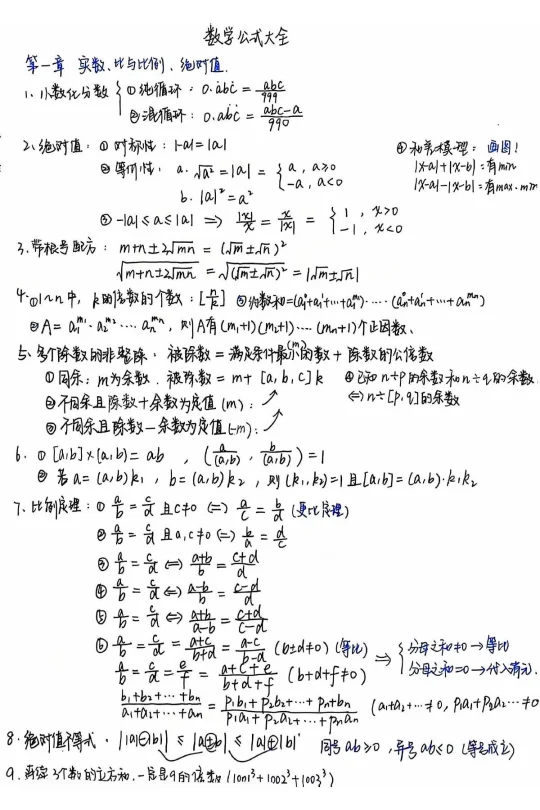 数学公式大全
第一章 实数、比与比例、绝对值.
1、小数化分数 { ① 纯循环：0.ȧbċ = abc/999
② 混循环：0.aḃċ = (abc-a)/990
2、绝对值：① 对称性：|-a|=|a|
② 等价性： a. √a² = |a| = { a, a≥0
-a, a<0
b. |a|² = a²
③ -|a| ≤ a ≤ |a| ⇒ |x|/x = x/|x| = { 1, x>0
-1, x<0
④ 和差模型：画图！
|x-a|+|x-b| = 有min
|x-a|-|x-b| = 有max、min
3、带根号配方： m+n±2√mn = (√m±√n)²
√(m+n±2√mn) = √(√m±√n)² = |√m±√n|
4、① 1~n 中，k的倍数的个数：[n/k] ③ 约数和=(a₁⁰+a₁¹+⋯+a₁^m₁)⋯⋯(aₙ⁰+aₙ¹+⋯+aₙ^mₙ)
② A = a₁^m₁·a₂^m₂⋯⋯aₙ^mₙ，则A有(m₁+1)(m₂+1)⋯⋯(mₙ+1)个正因数、
5、多个除数的非整除：被除数 = 满足条件最小的数(m) + 除数的公倍数
① 同余：m为余数．被除数 = m + [a,b,c]k ④ 已知n÷p的余数和n÷q的余数．
② 不同余且除数+余数为定值(m)： ⇔ n÷[p,q]的余数
③ 不同余且除数-余数为定值(-m)：
6、① [a,b]×(a,b) = ab ，(a/(a,b), b/(a,b)) = 1
② 若a=(a,b)k₁，b=(a,b)k₂，则(k₁,k₂)=1且[a,b]=(a,b)·k₁k₂
7、比例定理：① a/b = c/d 且c≠0 ⇔ a/c = b/d (更比定理)
② a/b = c/d 且a,c≠0 ⇔ b/a = d/c
③ a/b = c/d ⇔ (a+b)/b = (c+d)/d
④ a/b = c/d ⇔ (a-b)/b = (c-d)/d
⑤ a/b = c/d ⇔ (a+b)/(a-b) = (c+d)/(c-d)
⑥ a/b = c/d = (a+c)/(b+d) = (a-c)/(b-d) (b±d≠0) (等比)
a/b = c/d = e/f = (a+c+e)/(b+d+f) (b+d+f≠0)
⇒ { 分母之和≠0→等比
分母之和=0→代入消元.
(b₁+b₂+⋯+bₙ)/(a₁+a₂+⋯+aₙ) = (p₁b₁+p₂b₂+⋯+pₙ+bₙ)/(p₁a₁+p₂a₂+⋯+pₙaₙ) (a₁+a₂+⋯≠0, p₁a₁+p₂a₂⋯≠0)
8、绝对值不等式． ||a|⊖|b|| ≤ |a±b| ≤ |a|⊕|b| 同号ab≥0，异号ab≤0 (等号成立)
9、连续3个数的立方和．一定是9的倍数(1001³+1002³+1003³)